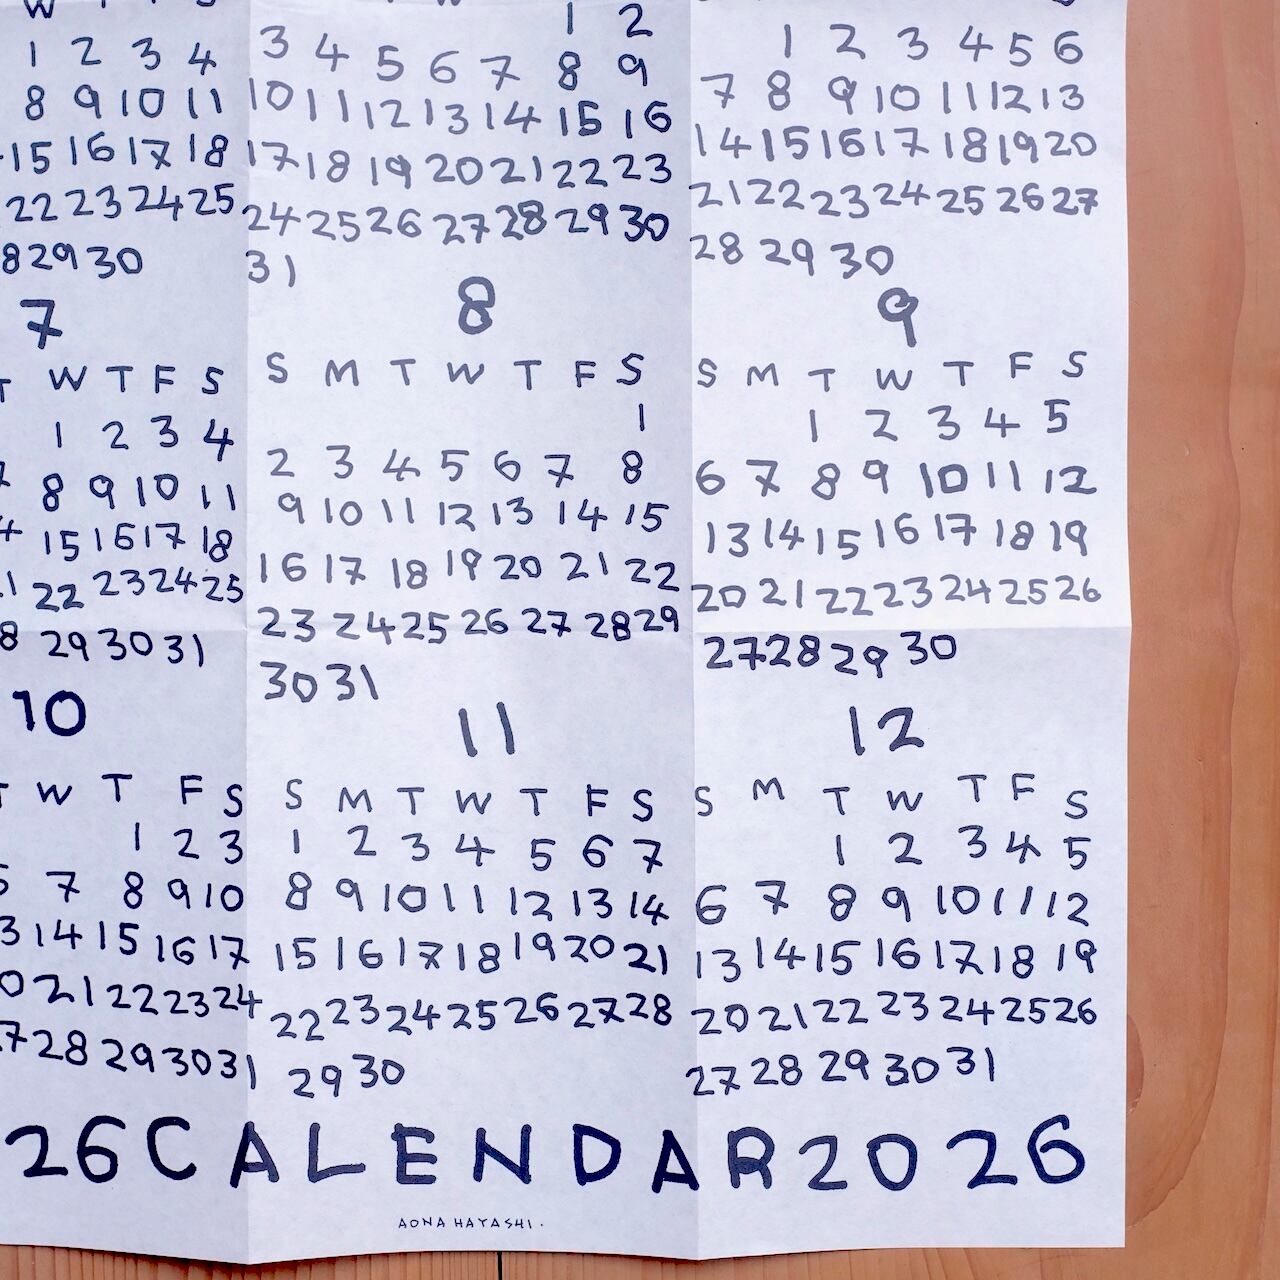 1 2 3 4
8 9 10 11
15 16 17 18
22 23 24 25
8 29 30
1 2
3 4 5 6 7 8 9
10 11 12 13 14 15 16
17 18 19 20 21 22 23
24 25 26 27 28 29 30
31
1 2 3 4 5 6
7 8 9 10 11 12 13
14 15 16 17 18 19 20
21 22 23 24 25 26 27
28 29 30
7
T W T F S
1 2 3 4
7 8 9 10 11
4 15 16 17 18
1 22 23 24 25
8 29 30 31
8
S M T W T F S
1
2 3 4 5 6 7 8
9 10 11 12 13 14 15
16 17 18 19 20 21 22
23 24 25 26 27 28 29
30 31
9
S M T W T F S
1 2 3 4 5
6 7 8 9 10 11 12
13 14 15 16 17 18 19
20 21 22 23 24 25 26
27 28 29 30
10
T W T F S
1 2 3
7 8 9 10
3 14 15 16 17
0 21 22 23 24
7 28 29 30 31
11
S M T W T F S
1 2 3 4 5 6 7
8 9 10 11 12 13 14
15 16 17 18 19 20 21
22 23 24 25 26 27 28
29 30
12
S M T W T F S
1 2 3 4 5
6 7 8 9 10 11 12
13 14 15 16 17 18 19
20 21 22 23 24 25 26
27 28 29 30 31
26 CALENDAR 2026
AONA HAYASHI.